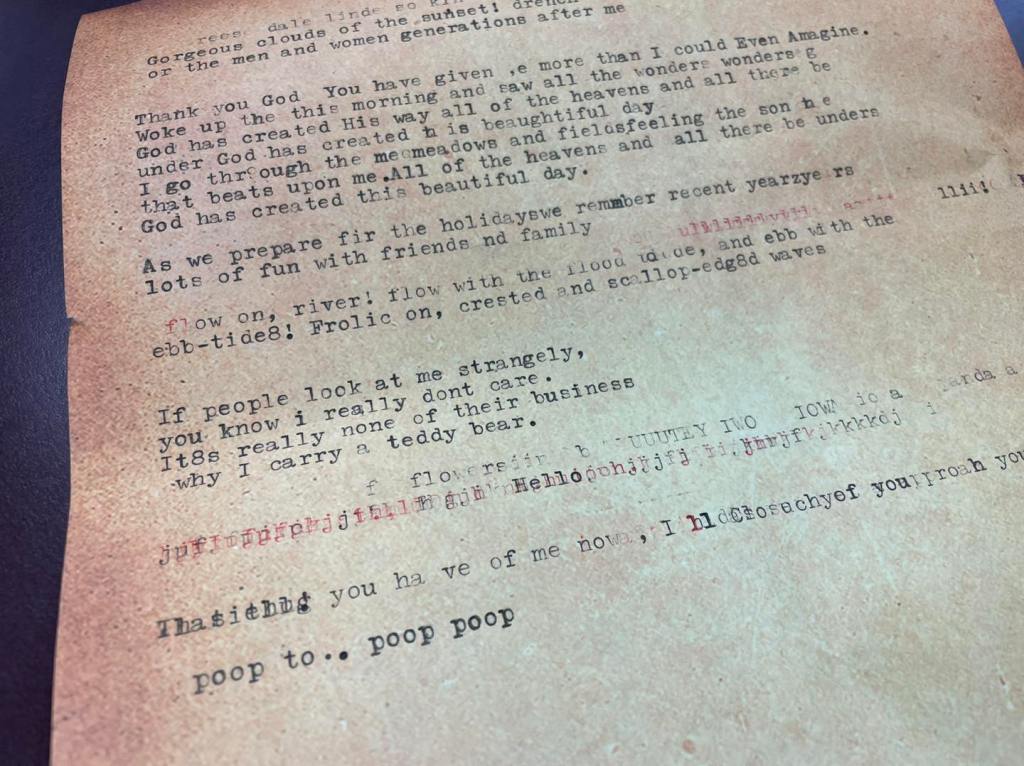 dale linde so
Gorgeous clouds of the sunset!
or the men and women generations after me
Thank you God You have given ,e more than I could Even Amagine.
Woke up the this morning and saw all the wonders wonders g
God has created His way all of the heavens and all there be
under God has created h is beaughtiful day
I go through the me meadows and fieldsfeeling the son h e
that beats upon me.All of the heavens and all there be unders
God has created this beautiful day.
As we prepare fir the holidayswe remmber recent yearzye rs
lots of fun with friends nd family
flow on, river! flow with the flood and ebb with the
ebb-tide8! Frolic on, crested and scallop-edg8d waves
If people look at me strangely,
you know i really dont care.
It8s really none of their business
why I carry a teddy bear.
f flowers b TWO IOWA
Hello
you ha ve of me now , I
poop to.. poop poop